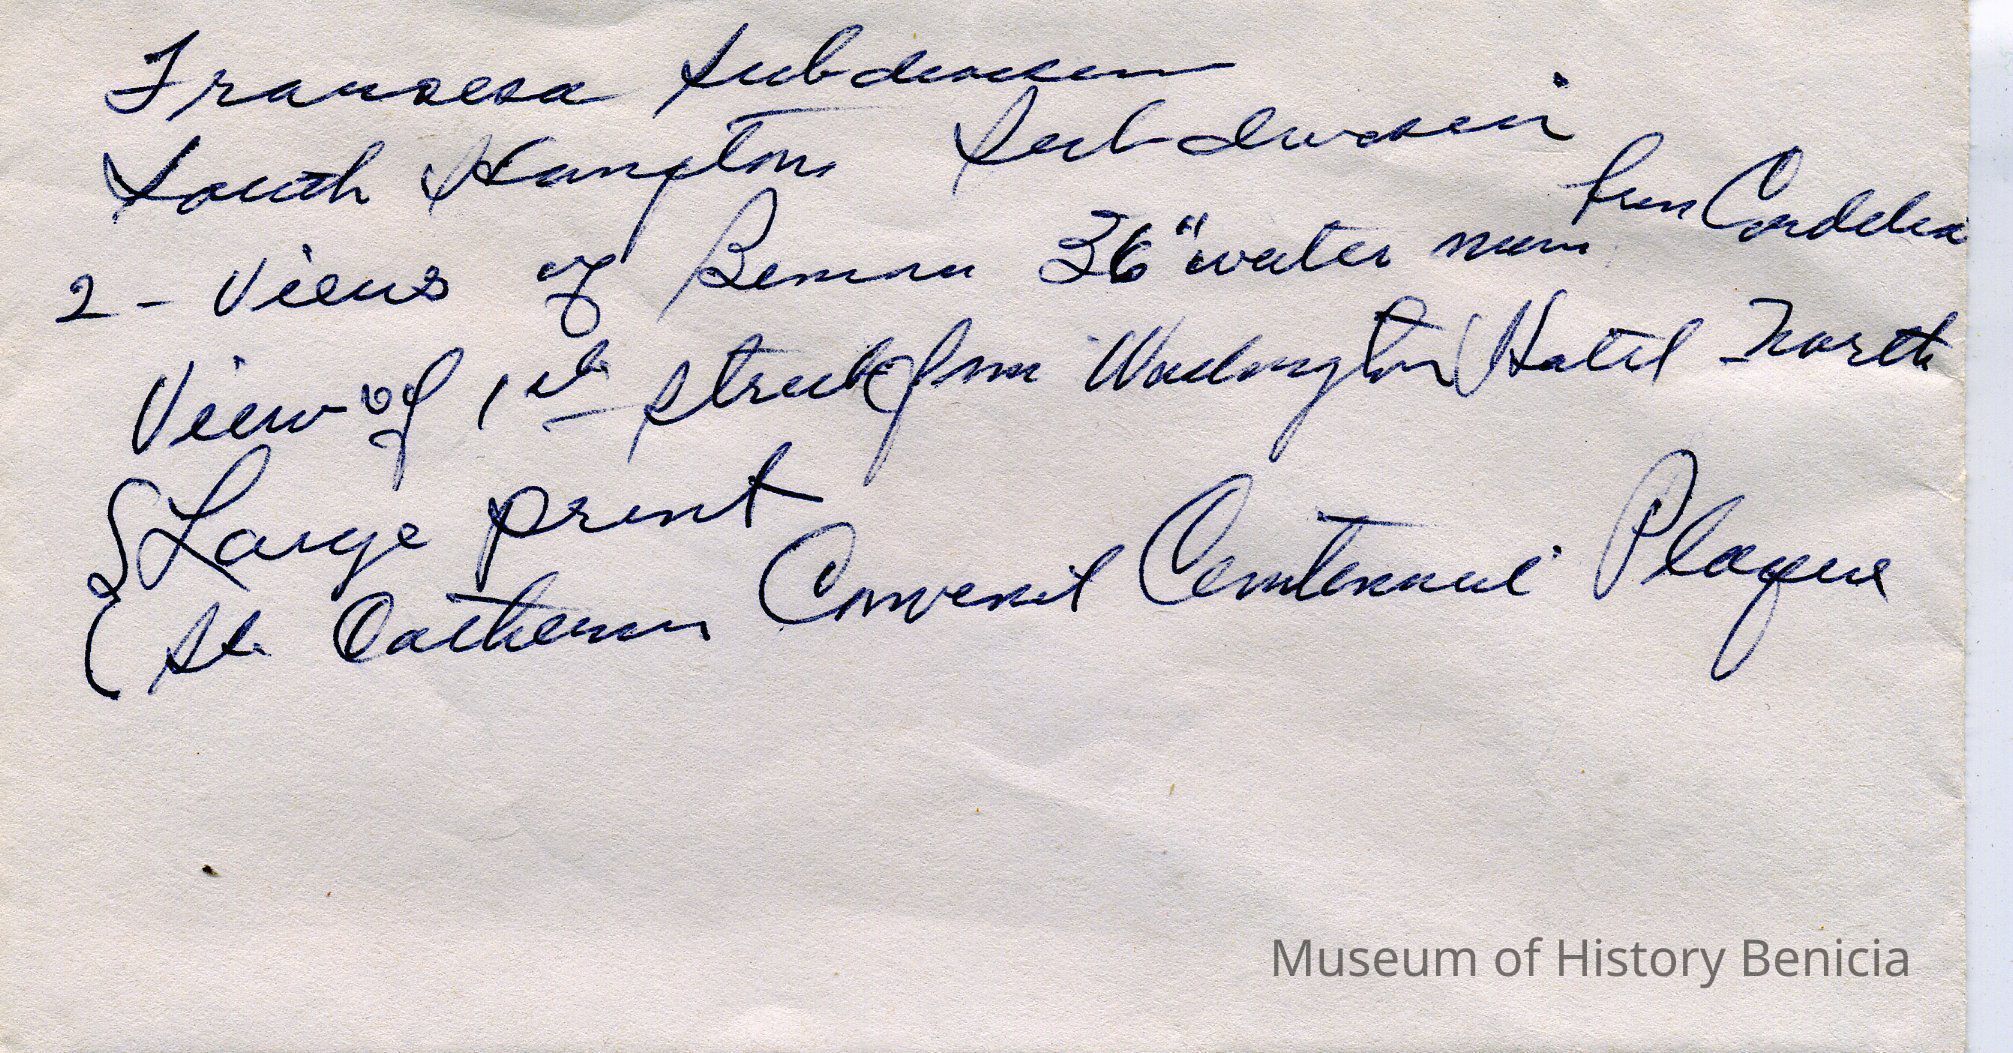 Francesca Subdivision
South Hampton Subdivision
2 - Views of Benicia 36" water main from Cordelia
View of 1st Street from Washington Hotel North
Large print
St. Catherines Convent Centennial Plaque
Museum of History Benicia